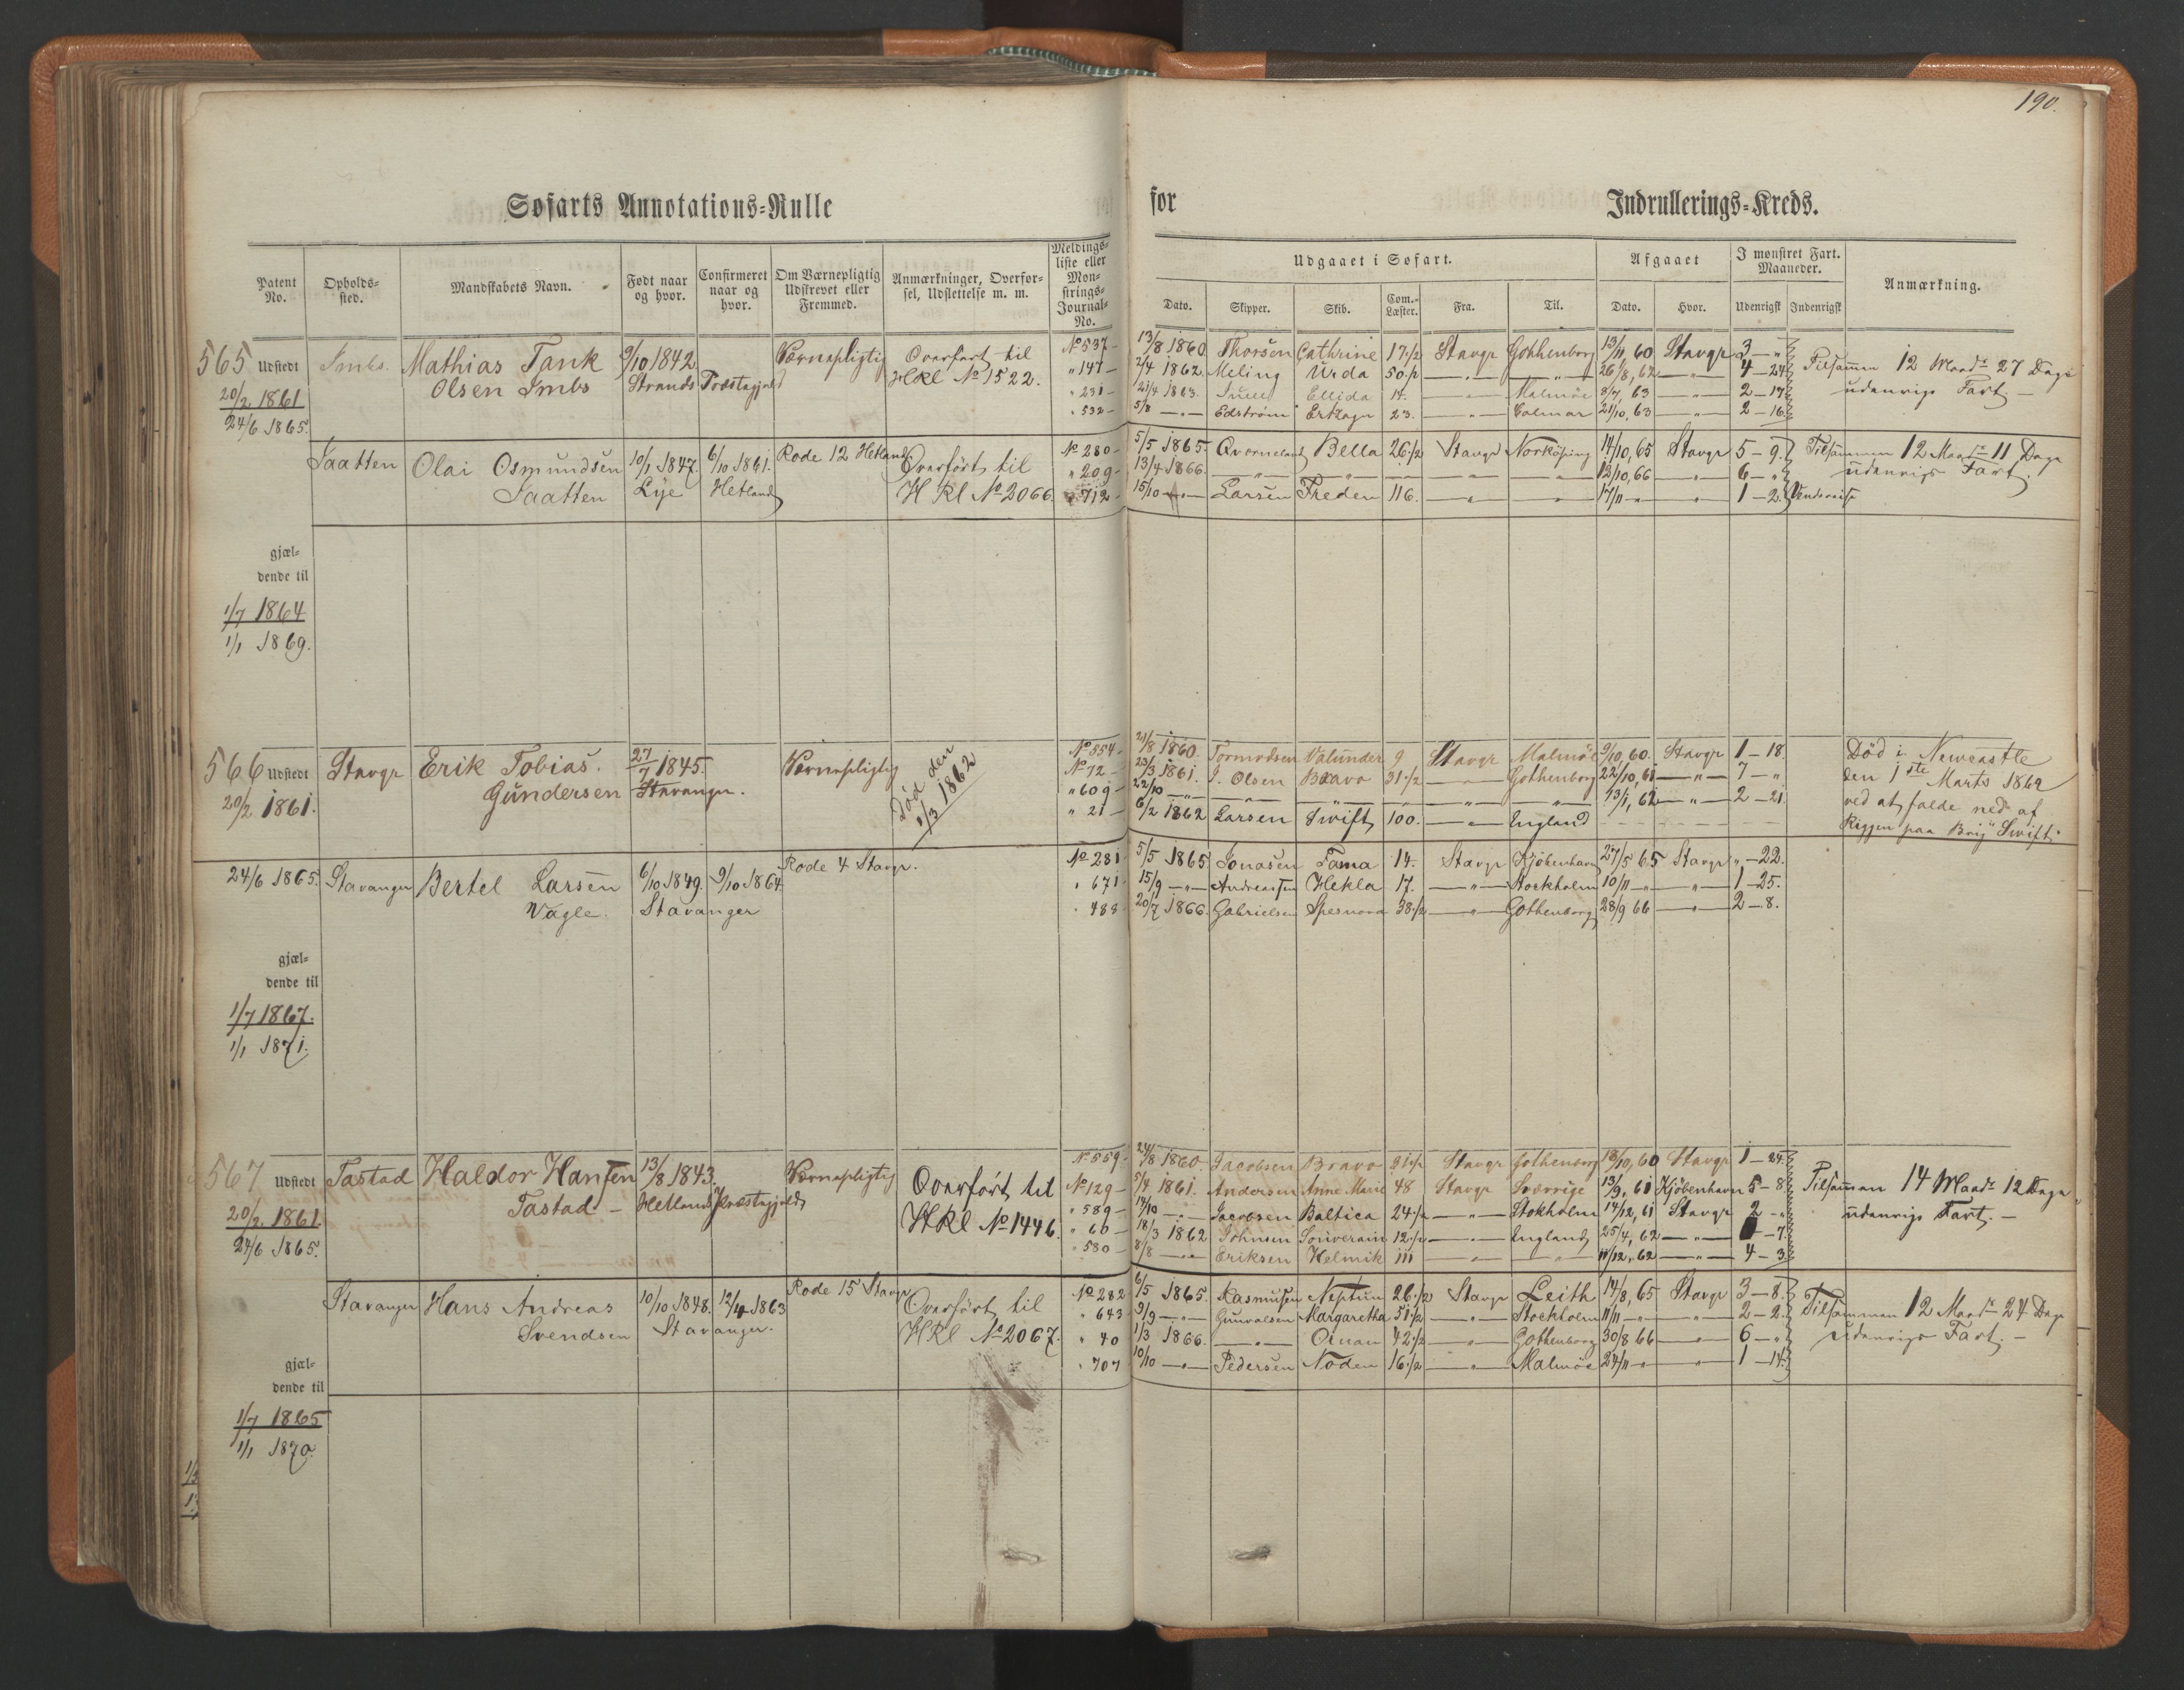 190.
Søfarts Annotations=Rulle
for
Indrullerings=Kreds.
Patent No.
Opholds-sted.
Mandskabets Navn.
Født naar og hvor.
Confirmeret naar og hvor.
Om Værnepligtig Udskrevet eller Fremmed.
Anmærkninger, Overfør-sel, Udslettelse m. m.
Meldings-liste eller Mon-strings-Journal-No.
Udgaaet i Søfart.
Afgaaet
I mønstret Fart. Maaneder.
Anmærkning.
Dato. Skipper. Skib. Com.-Læster. Fra. Til. Dato. Hvor. Udenrigst Indenrigst
565 Udstedt Imbs. Mathias Tank 9/10 1842 Værnepligtig Overført til No 537 - 13/8 1860 Thorsen Cathrine 17 1/2 Stavgr Gothenborg 13/11, 60 Stavgr 3 - " Tilsammen 12 Maadr 27 Dage
20/2 1861 Olsen Imbs Strands Præstegjeld HRl No 1522. " 147 - 2/4 1862 Meling Urda 50 1/2 — " — — " — 26/8, 62 — " — 4 - 24 udenrigs Fart —
24/6 1865. " 231 - 21/4 1863. Ellida 14. — " — Malmöe 8/7, 63 — " — 2 - 17
" 532 - 5/8 — " — Edström 23. — " — Calmar 21/10, 63 — " — 2 - 16
Saatten Olai Osmundsen 10/1 1847. 6/10 1861. Rode 12 Hetland Overført til No 280 - 5/5 1865. Qvorneland Bella 26 1/2 Stavgr Norköping 14/10, 65 Stavgr 5 - 9. Tilsammen 12 Maadr 11 Dage
Saatten Lye Hetland H Rl No 2066. " 209 - 13/4 1866. — " — — " — — " — — " — — " — 12/10, 66 — " — 6 - " udenrigs Fart.
" 712 - 15/10 — " — Larsen Freden 116. — " — — " — 17/11 — " — " 1 - 2.
gjæl-
dende til
1/7 1864
1/1 1869.
566 Udstedt Stavgr Erik Tobias. 27/7 1845. Værnepligtig Død den No 554 - 21/8 1860. Tormodsen Valunder 9 Stavgr Malmöe 9/10, 60. Stavgr 1 - 18. Død i Newcastle
20/2 1861. Gundersen Stavanger. 1/3 1862 No 72 - 23/3 1861. J. Olsen Bravo 31 1/2 — " — Gothenborg 22/10, 61 — " — 7 - " den 1ste Marts 1862
" 609 - 22/10 — " — — " — — " — — " — — " — 13/1, 62 — " — 2 - 21. ved at falde ned af
" 21 - 6/2 1862 Larsen Swift 100. — " — England Riggen paa Brig "Swift"
24/6 1865. Stavanger Bertel Larsen 6/10 1849. 9/10 1864. Rode 4 Stavgr. No 281 5/5 1865 Jonasen Fama 14. Stavgr Kjøbenhavn 27/5 65 Stavgr " - 22.
Vagle. Stavanger " 671 15/9 — " — Andreassen Hekla 17. — " — Stockholm 10/11 — " — " — 1 - 25.
" 488 20/7 1866. Gabrielsen Spesnova 38 1/2 — " — Gothenborg 28/9 66 — " — 2 - 8.
gjæl-
dende til
1/7 1867.
1/1 1871.
567 Udstedt Tastad Haldor Hansen 13/8 1843. Værnepligtig Overført til No 559 - 24/8 1860. Jacobsen Bravo 31 1/2 Stavgr Gothenborg 18/10, 60 Stavgr 1 - 24. Tilsammen 14 Maadr 12 Dage
20/2 1861 Tastad - Hetlands Præstegjeld HRl No 1446. No 129 - 5/4 1861. Andersen Anne Marie 48 Stavgr Sverrige 13/9, 61 Kjøbenhavn 5 - 8 udenrigs Fart. —
24/6 1865. " 589 - 14/10 — " — Jacobsen Baltica 24 1/2 — " — Stokholm 14/12, 61 Stavgr 2 - "
" 60 - 18/3 1862 Johnsen Souverain 12 1/2 — " — England 25/4, 62 — " — - 7.
" 580 - 8/8 — " — Eriksen Helmik 111 — " — — " — 11/12, 62 — " — 4 - 3
Stavanger Hans Andreas 10/10 1848. 12/4 1863 Rode 15 Stavgr Overført til No 282 6/5 1865. Rasmusen Neptun 26 1/2 Stavgr Leith 14/8, 65 Stavgr 3 - 8. Tilsammen 12 Maadr 24 Dage
Svendsen Stavanger. HRl No 2067. " 643 9/9 — " — Gunvalsen Margaretha 51 1/2 — " — Stockholm 11/11 — " — " — 2 - 2. udenrigs Fart. —
" 40 1/3 1866. — " — Oinan 42 1/2 — " — Gothenborg 30/8 66 — " — 6 - "
" 707 10/10 — " — Pedersen Noden 16 1/2 — " — Malmöe 24/11 — " — " — 1 - 14.
gjæl-
dende til
1/7 1865
1/1 1870.